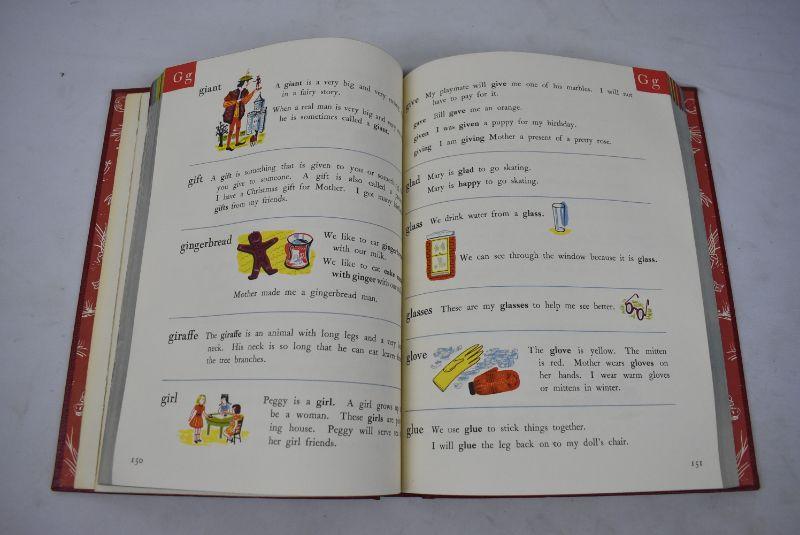 Gg
giant
A giant is a very big and very
in a fairy story.
When a real man is very big and very
he is sometimes called a giant.
gift
A gift is something that is given to you or
you give to someone. A gift is also called a
I have a Christmas gift for Mother. I got many
gifts from my friends.
gingerbread
We like to eat
with our milk.
We like to eat
with ginger with our
Mother made me a gingerbread man.
giraffe
The giraffe is an animal with long legs and a
neck. His neck is so long that he can eat leaves
the tree branches.
girl
Peggy is a girl. A girl grows
be a woman. These girls are
ing house. Peggy will serve
her girl friends.
150
Gg
give
My playmate will give me one of his marbles. I will not
have to pay for it.
gave Bill gave me an orange.
given I was given a puppy for my birthday.
giving I am giving Mother a present of a pretty rose.
glad
Mary is glad to go skating.
Mary is happy to go skating.
glass
We drink water from a glass.
We can see through the window because it is glass.
glasses
These are my glasses to help me see better.
glove
The glove is yellow. The mitten
is red. Mother wears gloves on
her hands. I wear warm gloves
or mittens in winter.
glue
We use glue to stick things together.
I will glue the leg back on to my doll's chair.
151